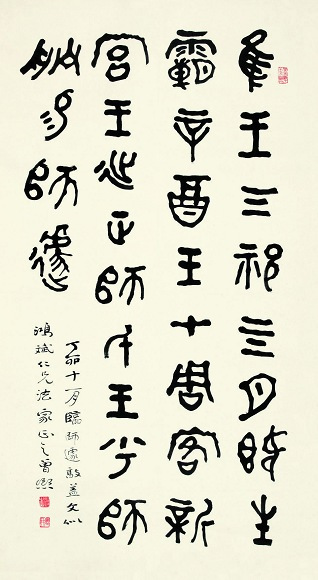 隹王三祀四月既生
霸辛酉王才周客新
宮王延正師氏王乎師
朕易師遽
丁卯十一月臨師遽敦蓋文似
鴻斌仁兄法家正之曾熙